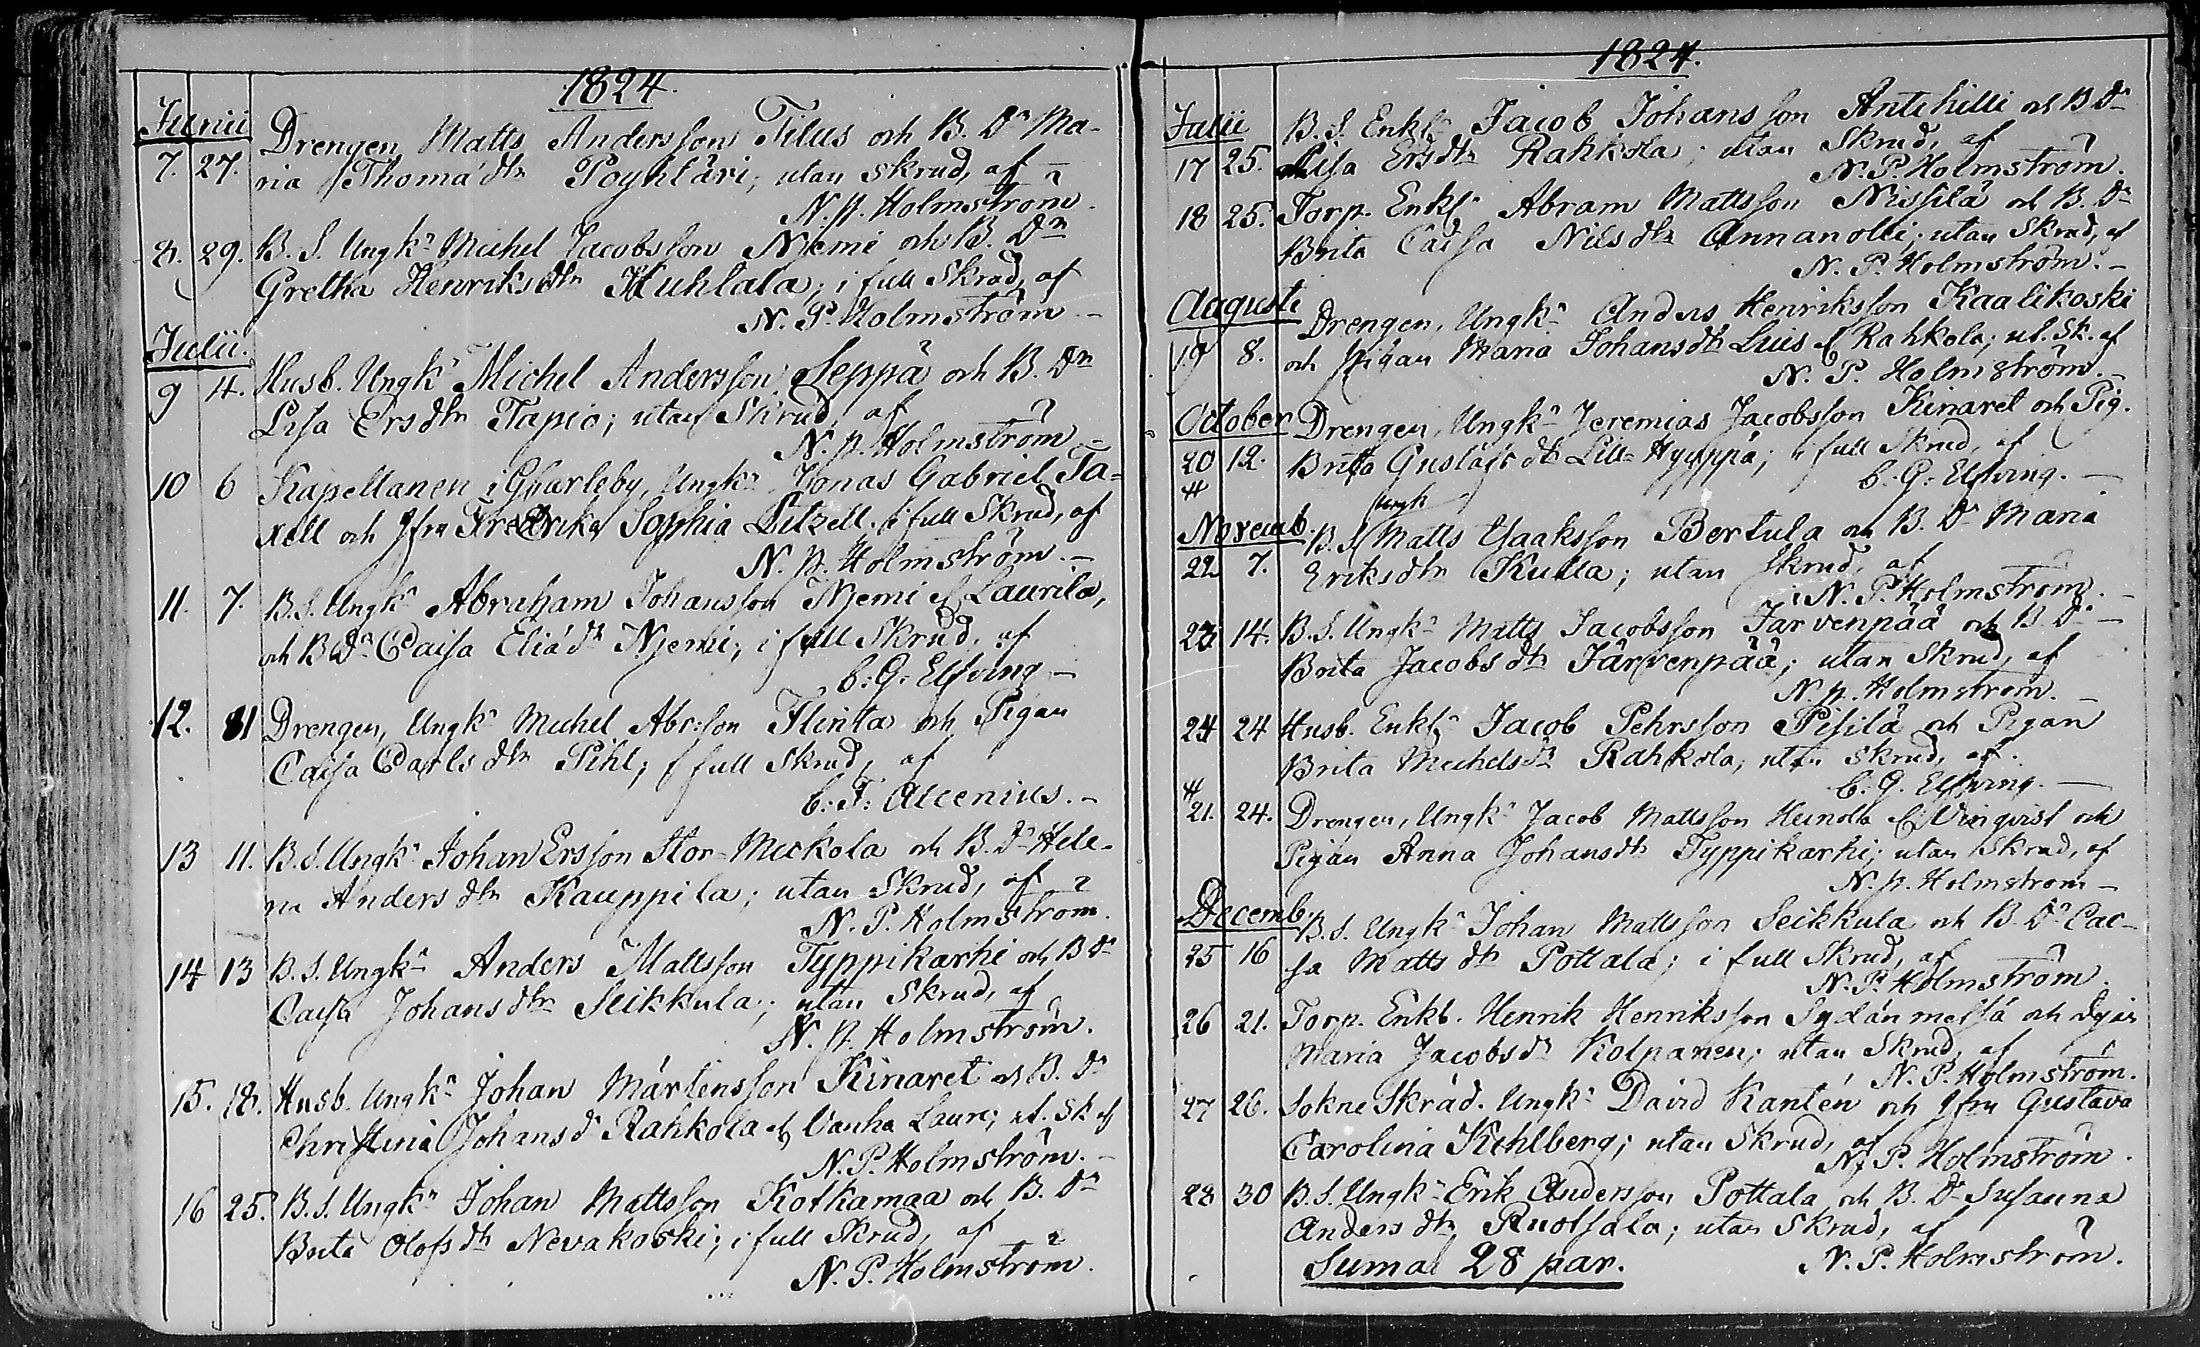 1824.
Junii
Drengen Matts Andersson Tilus och B. Dr Ma-
7. 27. ria Thomædtr Pöyhtäri; utan skrud, af
N. P. Holmström.
8. 29. B. S. Ungk: Michel Jacobsson Njemi och B. Dr
Gretha Henriksdtr Huhtala; i full Skrud, af
N. P. Holmström
Julii.
9 4. Husb. Ungk: Michel Andersson Seppä och B. Dr
Lisa Ersdtr Tapio; utan Skrud, af
N. P. Holmström
10 6 Kapellanen i Gharleby, Ungk: Jonas Gabriel Ta-
xell och Jfru Fredrika Sophia Litzell. i full Skrud, af
N. P. Holmström.
11. 7. B. S. Ungk: Abraham Johansson Njemi el. Laurila,
och B Dr Caisa Eliædr Njemi; i full Skrud, af
C. G. Elfving
12. 11 Drengen, Ungk: Michel Abr:son Flinta och Pigan
Caisa Carlsdtr Pihl; i full Skrud, af
C. F. Alcenius.
13 11. B. S. Ungk: Johan Ersson Stor-Mickola och B. Dr Hele-
na Andersdtr Kauppila; utan Skrud, af
N. P. Holmström.
14 13 B. S. Ungk: Anders Mattsson Typpikarhi och B Dr
Caisa Johansdtr Seikkula; utan Skrud, af
N. P. Holmström.
15. 18. Husb. Ungk: Johan Mårtensson Kinaret och B. Dr
Christina Johansd: Rahkola el. Vanha Lauri; ut. Sk. af
N. P. Holmström.
16 25. B. S. Ungk: Johan Mattsson Kotkamaa och B. Dr
Brita Olofsdtr Nevakoski; i full Skrud, af
N. P. Holmström.
1824.
Julii
B. S. Enkl: Jacob Johansson Antihilli och B Dr
17 25. Lisa Ersdtr Rahkola; utan Skrud, af
N. P. Holmström.
18 25. Torp. Enkl: Abram Mattsson Nissilä och B. Dr
Brita Caisa Nilsdtr Annanolli; utan Skrud, af
N. P. Holmström.
Augusti
Drengen, Ungk: Anders Henriksson Kaalikoski
19 8. och Pigan Maria Johansdtr Luis el. Rahkola; ut. Sk. af
N. P. Holmström.
October
Drengen, Ungk: Jeremias Jacobsson Kinaret och Pig.
20 12. Brita Gustafsdtr Lill-Hyyppä; i full Skrud, af
C. G. Elfving.
Novemb.
B. S. Ungk Matts Isaksson Bertula och B. Dr Maria
22 7. Eriksdtr Kulla; utan Skrud, af
N. P. Holmström.
23 14. B. S. Ungk: Matts Jacobsson Järvenpää och B. Dr
Brita Jacobsdtr Järvenpää; utan Skrud, af
N. P. Holmström.
24 24 Husb. Enkl: Jacob Pehrsson Pisilä och Pigan
Brita Michelsdtr Rahkola, utan Skrud, af
C. G. Elfving.
21. 24. Drengen, Ungk: Jacob Mattsson Heinola el. Vinqvist och
Pigan Anna Johansdtr Typpikarhi; utan Skrud, af
N. P. Holmström
Decemb.
B. S. Ungk: Johan Mattsson Seikkula och B. Dr Cai-
25 16 sa Mattsdtr Pottala; i full Skrud, af
N. P. Holmström.
26 21. Torp. Enkl. Henrik Henriksson Sydänmetsä och
Maria Jacobsdr Kolpanen; utan Skrud, af
N. P. Holmström.
27 26. Sokne Skräd. Ungk: David Kantén och Jfru Gustava
Carolina Kihlberg; utan Skrud, af
N. P. Holmström.
28 30 B. S. Ungk: Erik Andersson Pottala och B. Dr Susanna
Andersdtr Ruotsala; utan Skrud, af
N. P. Holmström.
Suma 28 par.